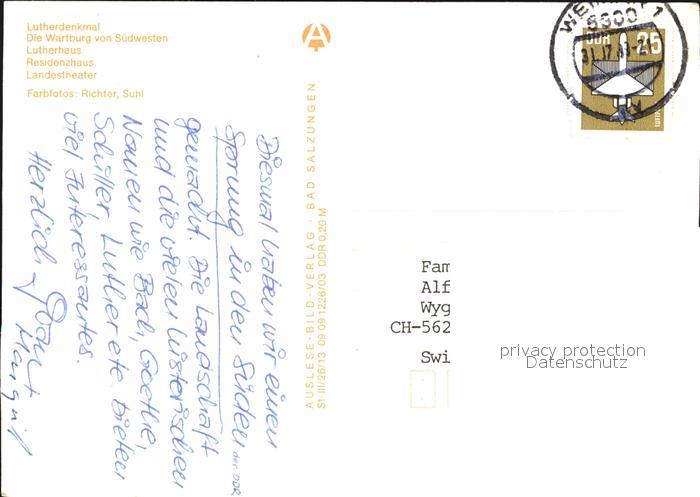 Lutherdenkmal
Die Wartburg von Südwesten
Lutherhaus
Residenzhaus
Landestheater
Farbfotos: Richter, Suhl
AUSLESE-BILD-VERLAG · BAD SALZUNGEN
S1 III/26/13 09 09 1226/03 DDR 0,20 M
Diesmal haben wir einen
Sprung in den Süden der DDR
gemacht. Die Landschaft
und die vielen historischen
Namen wie Bach, Goethe,
Schiller, Luther etc. bieten
viel Interessantes.
Herzlich
Margrit
WEIMAR 1
5300
DDR 25
Fam
Alf
Wyg
CH-562
Swi
privacy protection
Datenschutz